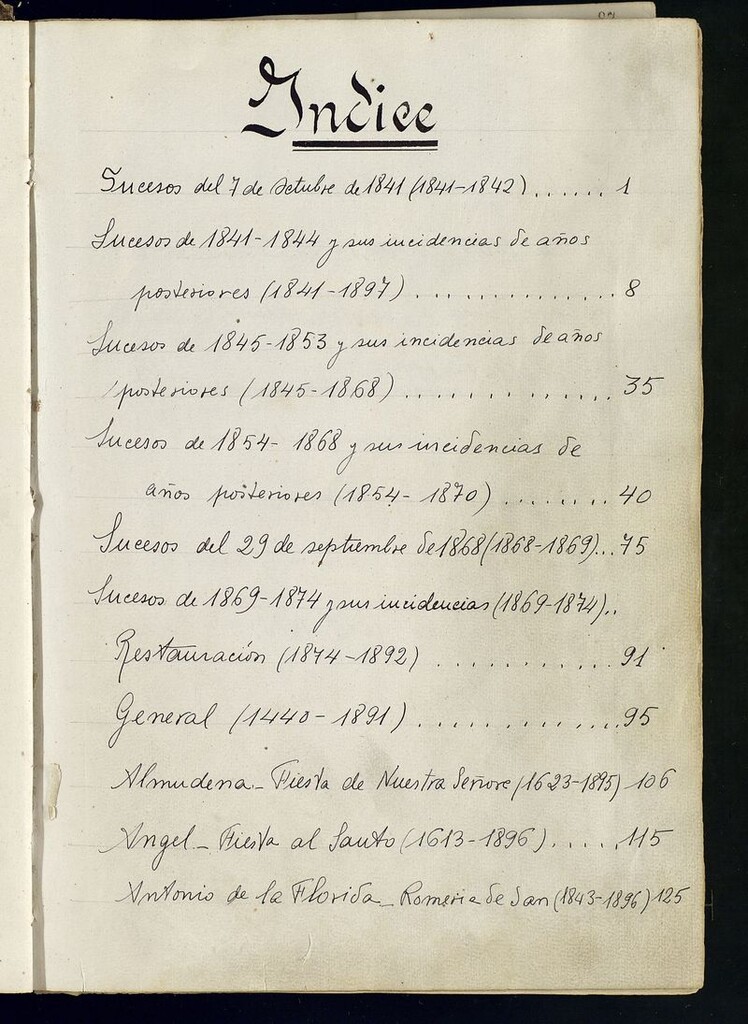 Indice
Sucesos del 7 de octubre de 1841 (1841-1842) ...... 1
Sucesos de 1841-1844 y sus incidencias de años
posteriores (1841-1897) .............. 8
Sucesos de 1845-1853 y sus incidencias de años
posteriores (1845-1868) .............. 35
Sucesos de 1854-1868 y sus incidencias de
años posteriores (1854-1870) ........ 40
Sucesos del 29 de septiembre de 1868 (1868-1869)... 75
Sucesos de 1869-1874 y sus incidencias (1869-1874)..
Restauración (1874-1892) ............ 91
General (1440-1891) .............. 95
Almudena - Fiesta de Nuestra Señora (1623-1895) 106
Angel - Fiesta al Santo (1613-1896) ..... 115
Antonio de la Florida - Romeria de San (1843-1896) 125